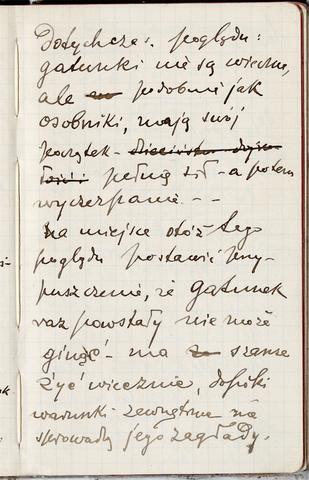 Dotychcz: poglądu:
gatunki nie są wieczne,
ale podobnie jak
osobniki, mają swój
początek - dzieciństwo
pełnię sił - a potem
wyczerpanie - -
Na miejsce otóż tego
poglądu postawić przy-
puszczenie, że gatunek
raz powstały nie może
ginąć - ma szanse
żyć wiecznie, dopóki
warunki zewnętrzne nie
sprowadzą jego zagłady.